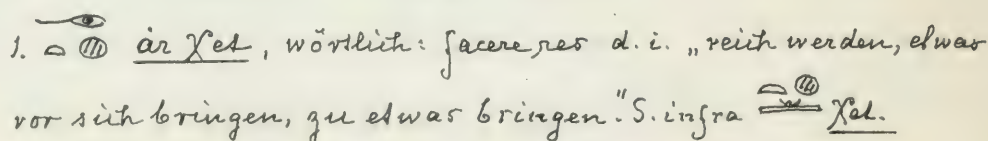 1. 𓁹𓏏𓐍 ȧr χet, wörtlich: facere res d. i. „reich werden, etwas
vor sich bringen, zu etwas bringen." S. infra 𓏏𓐍𓏛 χet.